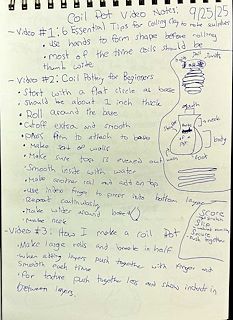 Coil Pot Video Notes: 9/25/25
- Video #1: 6 Essential Tips for Coiling clay to make sculptures
- Use hands to form shape before coiling
- most of the time coils should be thumb width
- Video #2: Coil Pottery for Beginners
- Start with a flat circle as base
- should be about 1 inch thick
- Roll around the base
- Cutoff extra and smooth
- press firm to attach to base
- Makes sort of walls
- Make sure top is evened out
- Smooth inside with water
- Make another coil and add on top
- Use index finger to press into bottom layer
- Repeat continuously
- Make wider around base
- make neck
- Video #3: How I make a Coil Pot
- Make large rolls and break in half
- when adding layers push together with finger and smooth each time
- For texture push together less and show indent in between layers.
mouth
neck
body
foot
score
slip
push together